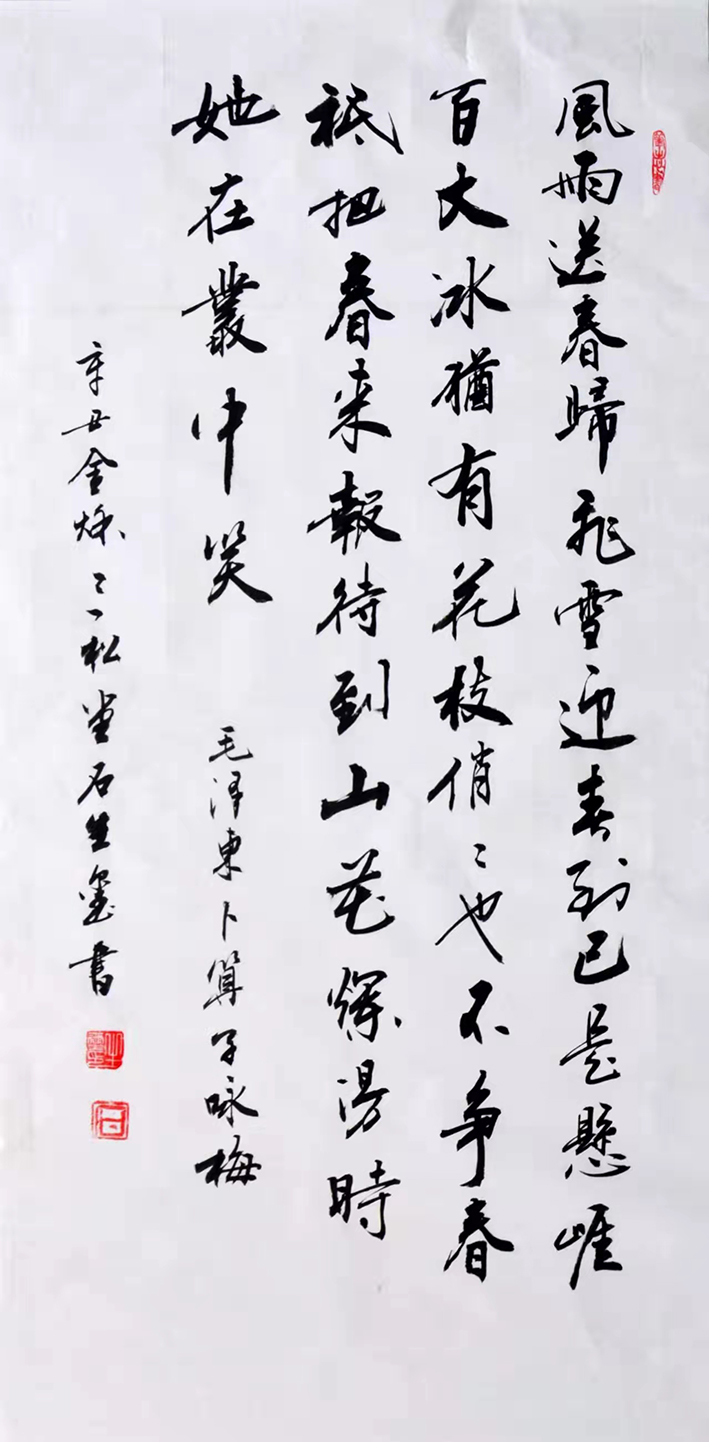 風雨送春歸飛雪迎春到已是懸崖
百丈冰猶有花枝俏〻也不争春
祇把春来報待到山花爛漫時
她在叢中笑
毛泽東卜算子咏梅
辛丑金秌一松堂石生書